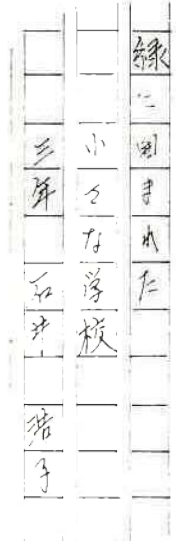 緑に囲まれた
小さな学校
三年 石井 浩子